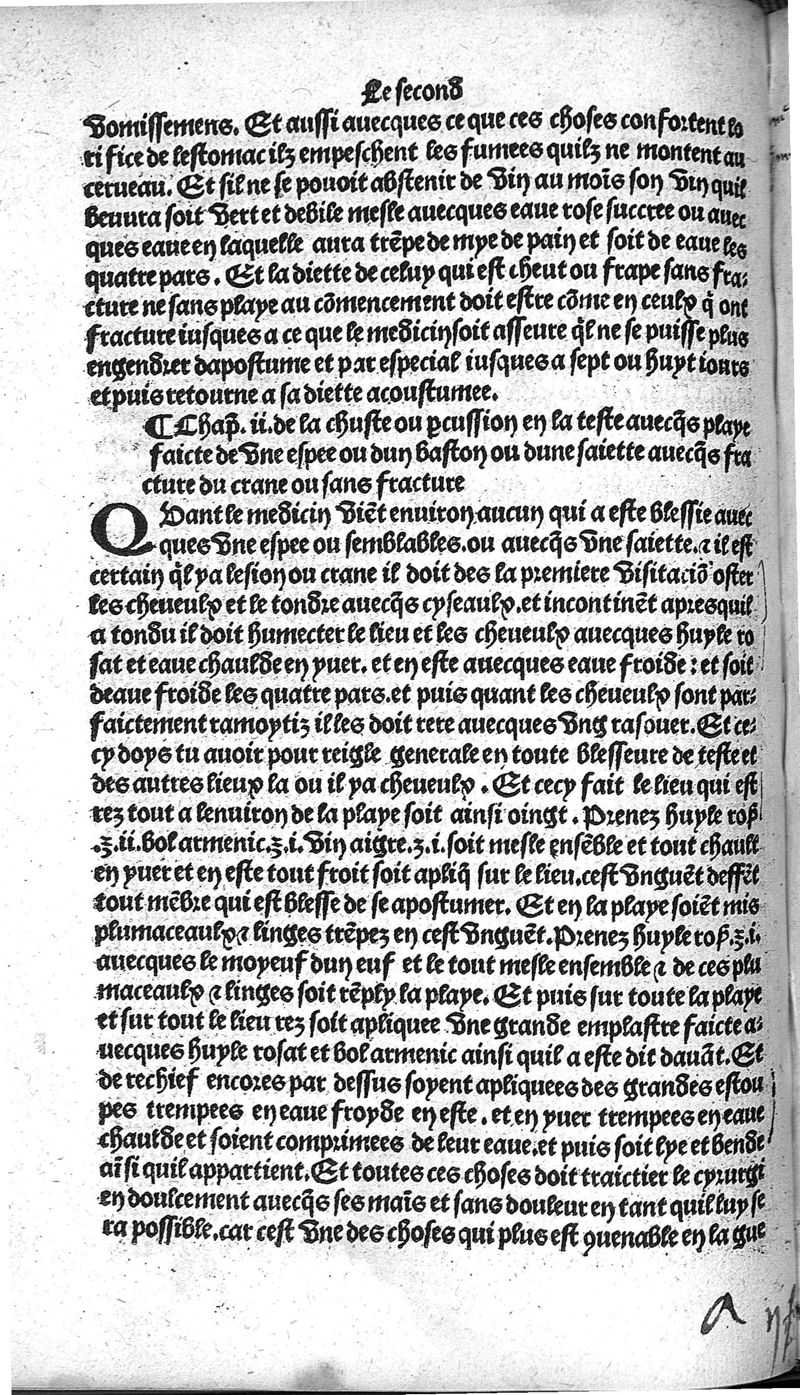 Le second
vomissemens. Et aussi auecques ce que ces choses confortent lo
rifice de lestomac ilz empeschent les fumees quilz ne montent au
cerueau. Et sil ne se pouoit abstenir de vin au moīs son vin quil
beuura soit vert et debile mesle auecques eaue rose succree ou auec
ques eaue en laquelle aura trēpe de mye de pain et soit de eaue les
quatre pars. Et la diette de celuy qui est cheut ou frape sans fra-
cture ne sans playe au cōmencement doit estre cōme en ceulx q̄ ont
fracture iusques a ce que le medicin soit asseure q̄l ne se puisse plus
engendrer dapostume et par especial iusques a sept ou huyt iours
et puis retourne a sa diette acoustumee.
¶ Chap̄. ii. de la chuste ou ꝑcussion en la teste auecq̄s playe
faicte de vne espee ou dun baston ou dune saiette auecq̄s fra
cture du crane ou sans fracture
QVant le medicin viēt enuiron aucun qui a este blessie auec
ques vne espee ou semblables. ou auecq̄s vne saiette. ⁊ il est
certain q̄l ya lesion ou crane il doit des la premiere visitaciō oster
les cheueulx et le tondre auecq̄s cyseaulx. et incontinēt apres quil
a tondu il doit humecter le lieu et les cheueulx auecques huyle ro
sat et eaue chaulde en yuer. et en este auecques eaue froide: et soit
deaue froide les quatre pars. et puis quant les cheueulx sont par-
faictement ramoytiz il les doit rere auecques vng rasouer. Et ce-
cy doys tu auoir pour reigle generale en toute blesseure de teste et
des autres lieux la ou il ya cheueulx. Et cecy fait le lieu qui est
rez tout a lenuiron de la playe soit ainsi oingt. Prenez huyle roß
.ʒ. ii. bol armenic. ʒ. i. vin aigre. ʒ. i. soit mesle ensēble et tout chault
en yuer et en este tout froit soit apliq̄ sur le lieu. cest vnguēt deffēt
tout mēbre qui est blesse de se apostumer. Et en la playe soiēt mis
plumaceaulx ⁊ linges trēpez en cest vnguēt. Prenez huyle roß. ʒ. i.
auecques le moyeuf dun euf et le tout mesle ensemble ⁊ de ces plu
maceaulx ⁊ linges soit rēply la playe. Et puis sur toute la playe
et sur tout le lieu rez soit apliquee vne grande emplastre faicte a-
uecques huyle rosat et bol armenic ainsi quil a este dit dauāt. Et
de rechief encores par dessus soyent apliquees des grandes estou
pes trempees en eaue froyde en este. et en yuer trempees en eaue
chaulde et soient comprimees de leur eaue. et puis soit lye et bende
aīsi quil appartient. Et toutes ces choses doit traictier le cyrurgi
en doulcement auecq̄s ses maīs et sans douleur en tant quil luy se
ra possible. car cest vne des choses qui plus est ꝯuenable en la gue
a